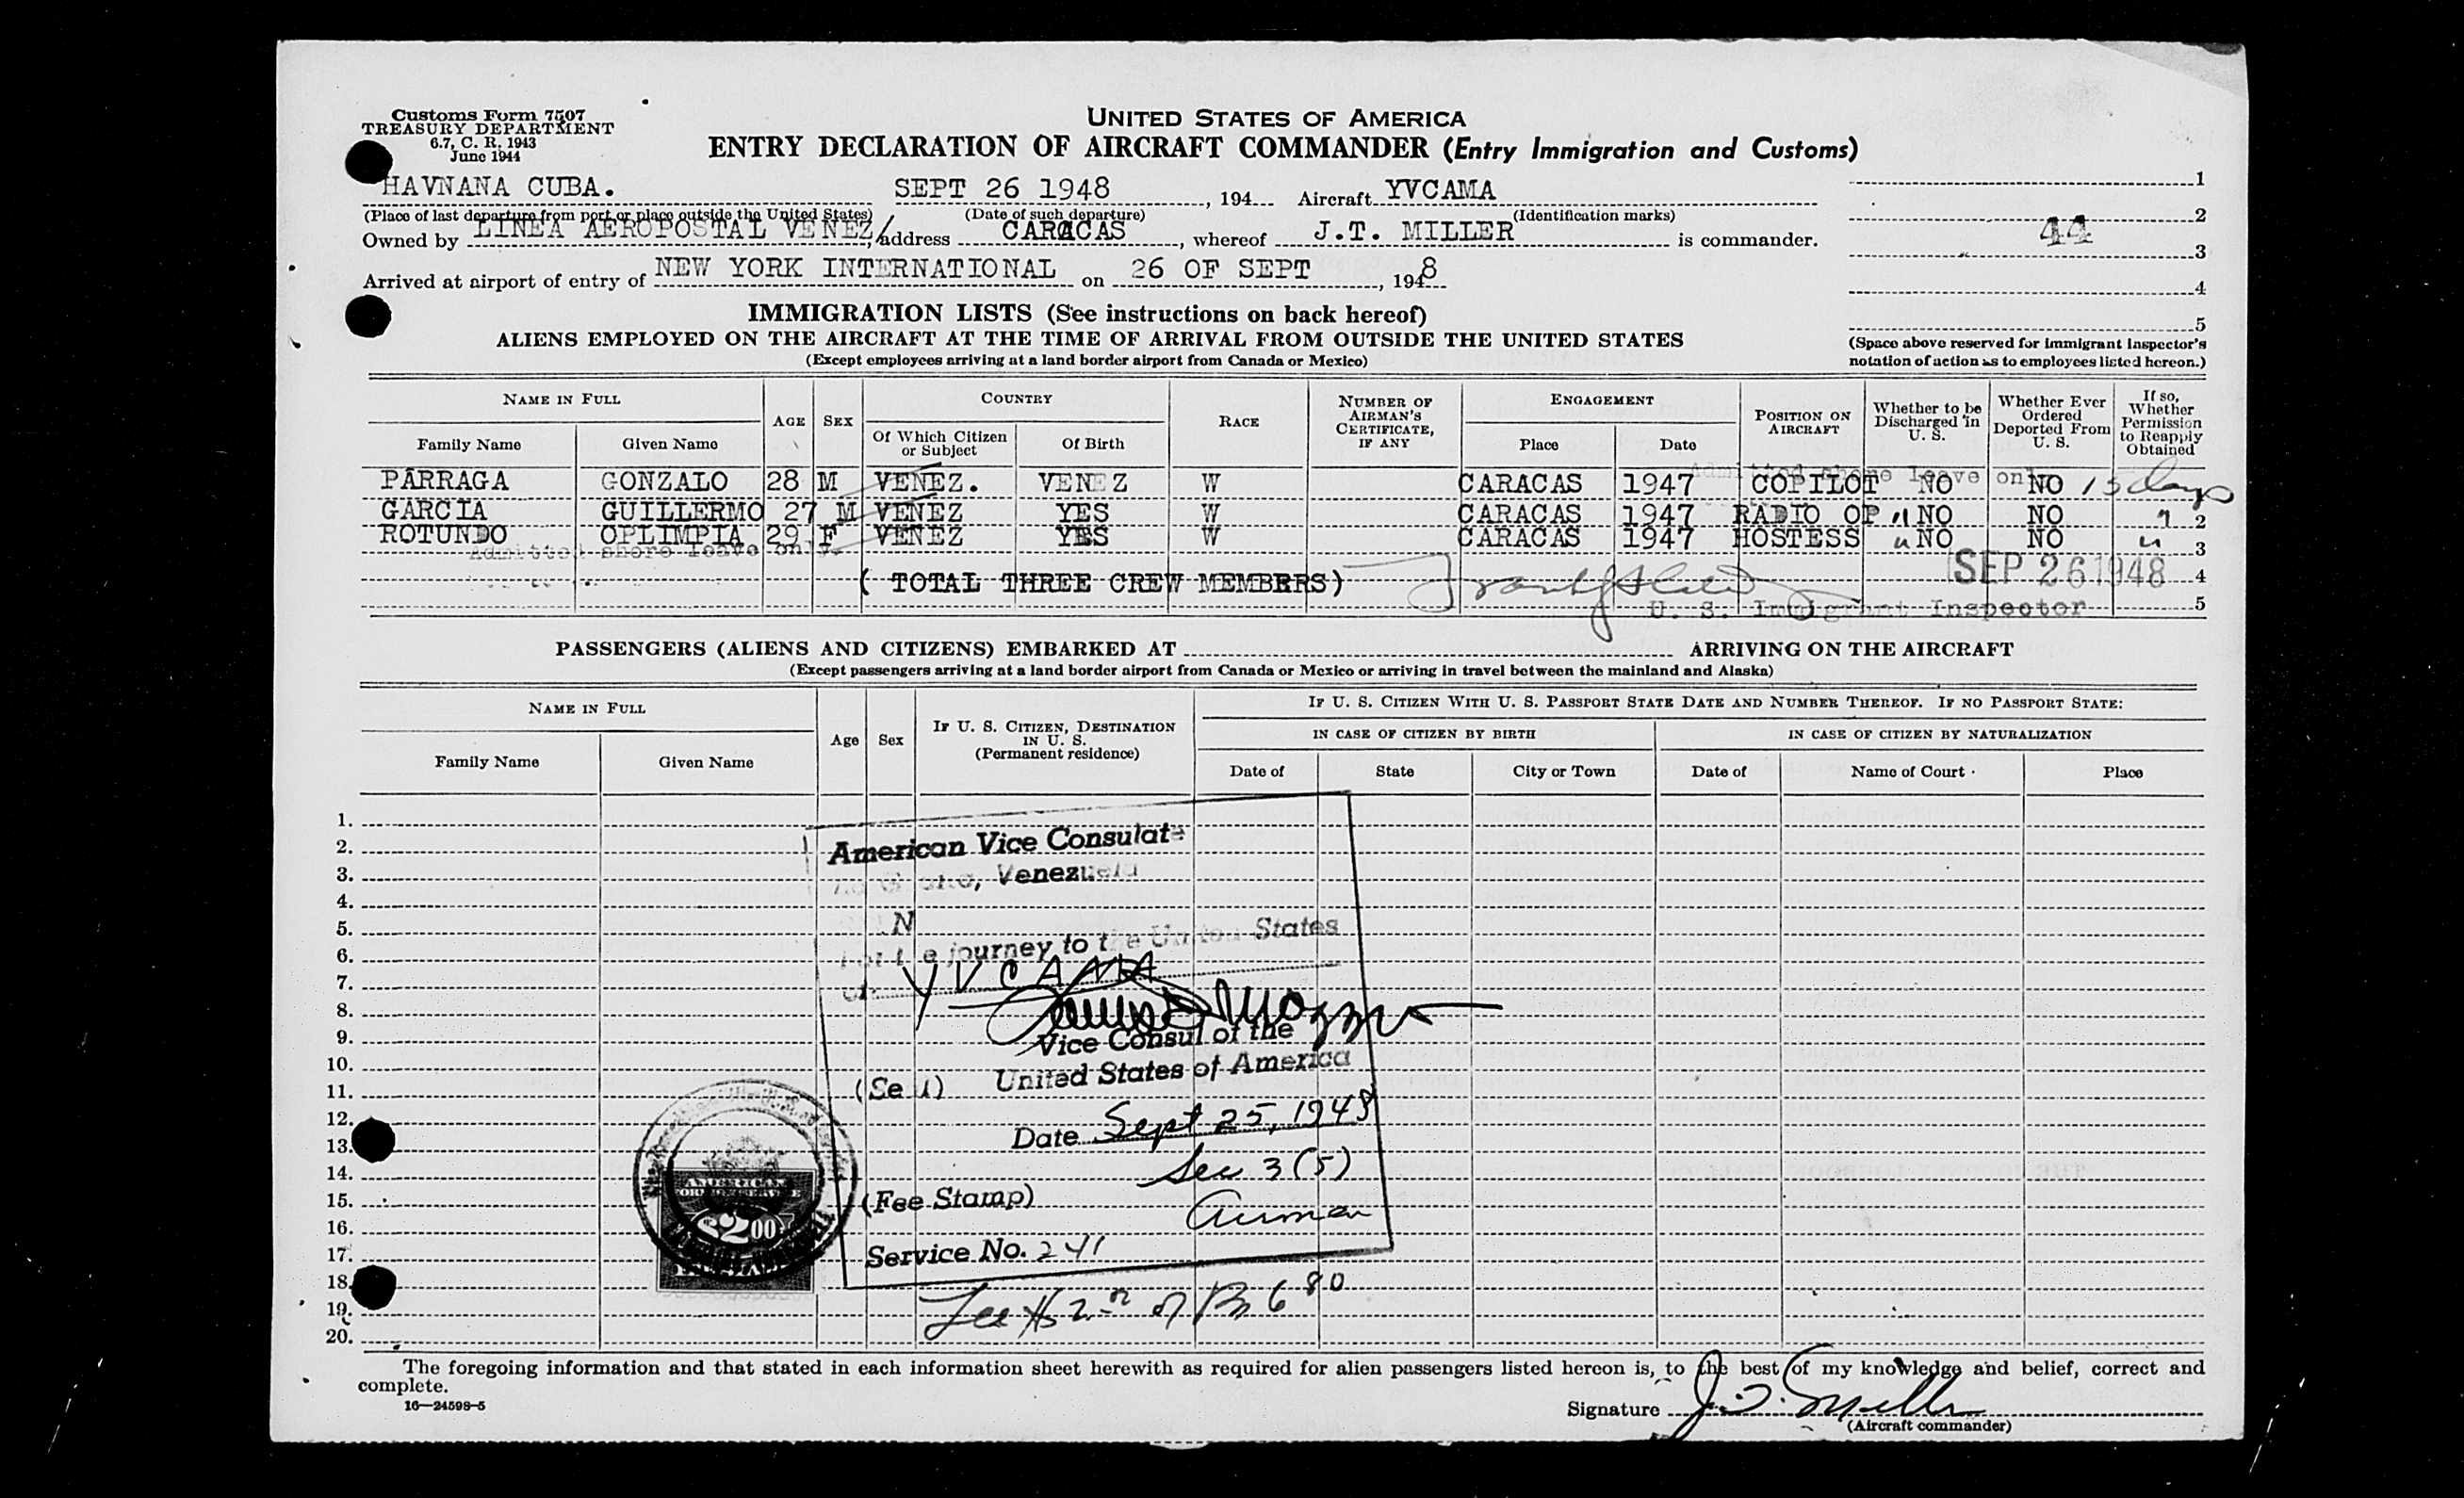 Customs Form 7507
TREASURY DEPARTMENT
6.7, C. R. 1943
June 1944
UNITED STATES OF AMERICA
ENTRY DECLARATION OF AIRCRAFT COMMANDER (Entry Immigration and Customs)
HAVNANA CUBA. SEPT 26 1948, 194 Aircraft YVCAMA
(Place of last departure from port or place outside the United States) (Date of such departure) (Identification marks)
Owned by LINEA AEROPOSTAL VENEZ/ address CARACAS, whereof J.T. MILLER is commander.
Arrived at airport of entry of NEW YORK INTERNATIONAL on 26 OF SEPT, 1948
1
2
44
3
4
5
(Space above reserved for Immigrant Inspector's
notation of action as to employees listed hereon.)
IMMIGRATION LISTS (See instructions on back hereof)
ALIENS EMPLOYED ON THE AIRCRAFT AT THE TIME OF ARRIVAL FROM OUTSIDE THE UNITED STATES
(Except employees arriving at a land border airport from Canada or Mexico)
NAME IN FULL
Family Name Given Name
AGE SEX
COUNTRY
Of Which Citizen or Subject Of Birth
RACE
NUMBER OF AIRMAN'S CERTIFICATE, IF ANY
ENGAGEMENT
Place Date
POSITION ON AIRCRAFT
Whether to be Discharged in U. S.
Whether Ever Ordered Deported From U. S.
If so, Whether Permission to Reapply Obtained
PARRAGA GONZALO 28 M VENEZ. VENEZ W CARACAS 1947 COPILOT NO NO 15 days
Admitted shore leave only
GARCIA GUILLERMO 27 M VENEZ YES W CARACAS 1947 RADIO OP " NO NO " 2
ROTUNDO OPLIMPIA 29 F VENEZ YES W CARACAS 1947 HOSTESS " NO NO " 3
Admitted shore leave only.
( TOTAL THREE CREW MEMBERS) SEP 26 1948 4
U. S. Immigrant Inspector 5
PASSENGERS (ALIENS AND CITIZENS) EMBARKED AT ARRIVING ON THE AIRCRAFT
(Except passengers arriving at a land border airport from Canada or Mexico or arriving in travel between the mainland and Alaska)
NAME IN FULL
Family Name Given Name
Age Sex
IF U. S. CITIZEN, DESTINATION IN U. S.
(Permanent residence)
IF U. S. CITIZEN WITH U. S. PASSPORT STATE DATE AND NUMBER THEREOF. IF NO PASSPORT STATE:
IN CASE OF CITIZEN BY BIRTH IN CASE OF CITIZEN BY NATURALIZATION
Date of State City or Town Date of Name of Court Place
1.
2.
3.
4.
5.
6.
7.
8.
9.
10.
11.
12.
13.
14.
15.
16.
17.
18.
19.
20.
American Vice Consulate
Venezuela
journey to the United States
YVCAMA
Vice Consul of the
United States of America
(Seal)
Date Sept 25, 1948
Sec 3 (5)
(Fee Stamp) airman
Service No. 241
AMERICAN
FOREIGN SERVICE
$2.00
Fee $2.00 or Bs 6.80
The foregoing information and that stated in each information sheet herewith as required for alien passengers listed hereon is, to the best of my knowledge and belief, correct and
complete.
16—24598-5
Signature J. T. Miller
(Aircraft commander)